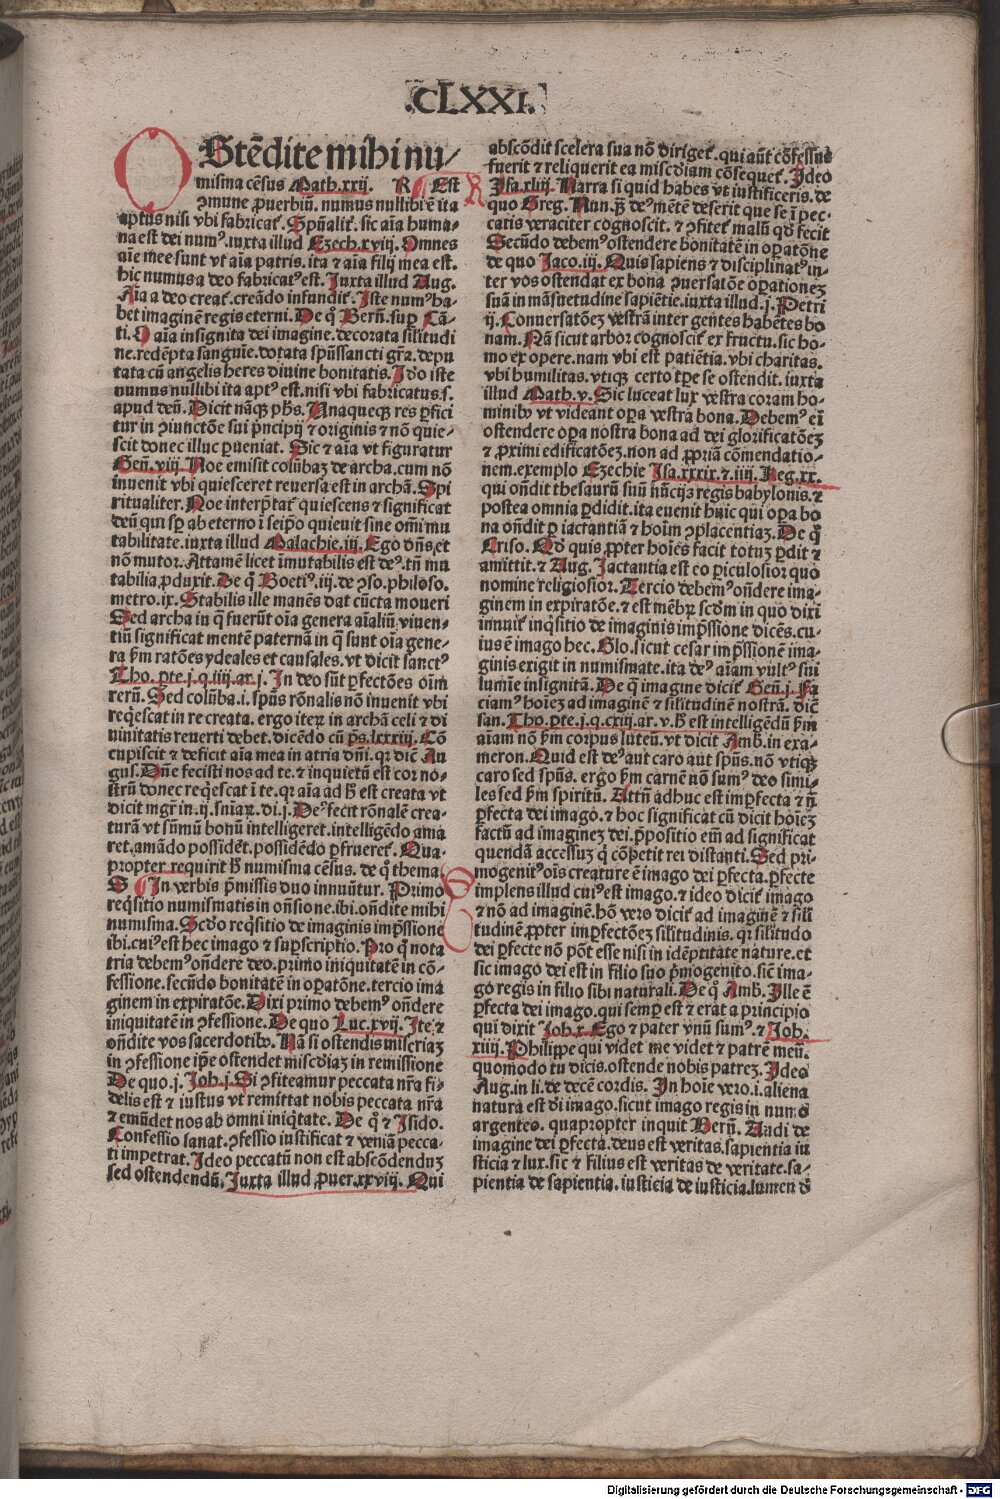 .CLXXI.
OStẽdite mihi nu/
misma cẽsus Math.xxij. R Est
ꝯmune ꝓuerbiũ. numus nullibi ẽ ita
aptus nisi vbi fabricat᷑. Spũalit᷑. sic aĩa huma-
na est dei numꝰ. iuxta illud Ezech.xviij. Omnes
aĩe mee sunt vt aĩa patris. ita ⁊ aĩa filij mea est.
hic numus a deo fabricatꝰ est. Iuxta illud Aug.
Aĩa a deo creat᷑. creãdo infundit᷑. Iste numꝰ ha-
bet imaginẽ regis eterni. De q̊ Berñ. suꝑ Cã-
ti. O aĩa insignita dei imagine. decorata silitudi
ne. redẽpta sanguĩe. dotata spũssancti gr̃a. depu
tata cũ angelis heres diuine bonitatis. Ido iste
numus nullibi ita aptꝰ est. nisi vbi fabricatus. s.
apud deũ. Dicit nãqꝫ ph̃s. Unaqueqꝫ res ꝑfici
tur in ꝯiunctõe sui prĩncipij ⁊ originis ⁊ nõ quie-
scit donec illuc ꝑueniat. Sic ⁊ aĩa vt figuratur
Geñ.viij. Noe emisit colũbaꝫ de archa. cum nõ
inuenit vbi quiesceret reuersa est in archã. Spi
ritualiter. Noe interp̃tat᷑ quiescens ⁊ significat
deũ qui sꝑ ab eterno ĩ seip̃o quieuit sine om̃i mu
tabilitate. iuxta illud Malachie.iij. Ego dñs. et
nõ mutor. Attamẽ licet ĩmutabilis est deꝰ. tñ mu
tabilia ꝓduxit. De q̊ Boetiꝰ.iij. de ꝯso. philoso.
metro.ix. Stabilis ille manẽs dat cũcta moueri
Sed archa in q̃ fuerũt oĩa genera aĩaliũ viuen-
tiũ significat mentẽ paternã in q̃ sunt oĩa gene-
ra ẜm ratões ydeales et causales. vt dicit sanctꝰ
Tho.ꝑte.j.q.iiij.ar.j. In deo sũt ꝑfectões oĩm
rerũ. Sed colũba.i. spũs rõnalis nõ inuenit vbi
req̃escat in re creata. ergo iteꝝ in archã celi ⁊ di
uinitatis reuerti debet. dicẽdo cũ ps̃.lxxxiij. Cõ
cupiscit ⁊ deficit aĩa mea in atria dñi. qꝛ dic̃ Au
gus. Dñe fecisti nos ad te. ⁊ inquietũ est cor no-
strũ donec req̃escat ĩ te. qꝛ aĩa ad h̃ est creata vt
dicit mgr̃ in.ij. sniaꝝ.di.j. Deꝰ fecit rõnalẽ crea-
turã vt sũmũ bonũ intelligeret. intelligẽdo ama
ret. amãdo possidẽt. possidẽdo ꝑfrueret᷑. Qua-
propter requirit h̃ numisma cẽsus. de q̊ thema
S In verbis p̃missis duo innuũtur. Primo
req̃sitio numismatis in oñsione. ibi. oñdite mihi
numisma. Scd̃o req̃sitio de imaginis imp̃ssione
ibi. cuiꝰ est hec imago ⁊ suꝑscriptio. Pro q̊ nota
tria debemꝰ oñdere deo. primo iniquitatẽ in cõ-
fessione. secũdo bonitatẽ in oꝑatõne. tercio ima
ginem in expiratõe. Dixi primo debemꝰ oñdere
iniquitatẽ in ꝯfessione. De quo Luc.xvij. Ite ⁊
oñdite vos sacerdotibꝰ. Nã si ostendis miseriaꝫ
in ꝯfessione ip̃e ostendet misc̃diaꝫ in remissione
De quo.j. Ioh.j. Si ꝯfiteamur peccata nr̃a fi-
delis est ⁊ iustus vt remittat nobis peccata nr̃a
⁊ emũdet nos ab omni iniq̃tate. De q̊ ⁊ Isido.
Confessio sanat. ꝯfessio iustificat ⁊ veniã pecca-
ti impetrat. Ideo peccatũ non est abscõdenduꝫ
sed ostendendũ. Iuxta illud ꝓuer.xxviij. Qui
abscõdit scelera sua nõ diriget᷑. qui aũt cõfessus
fuerit ⁊ reliquerit ea misc̃diam cõsequet᷑. Ideo
Isa.xliij. Narra si quid habes vt iustificeris. de
quo Greg. Nun.qꝫ deꝰ mẽtẽ deserit que se ĩ pec-
catis veraciter cognoscit. ⁊ ꝯfitet᷑ malũ qd̃ fecit
Secũdo debemꝰ ostendere bonitatẽ in oꝑatõne
de quo Iaco.iij. Quis sapiens ⁊ disciplinatꝰ in-
ter vos ostendat ex bona ꝯuersatõe oꝑationeꝫ
suã in mãsuetudine sapiẽtie. iuxta illud.j. Petri
ij. Conuersatõeꝫ vestrã inter gentes habẽtes bo
nam. Nã sicut arbor cognoscit᷑ ex fructu. sic ho-
mo ex opere. nam vbi est patiẽtia. vbi charitas.
vbi humilitas. vtiqꝫ certo tꝑe se ostendit. iuxta
illud Math.v. Sic luceat lux vestra coram ho-
minibꝰ vt videant oꝑa vestra bona. Debemꝰ em̃
ostendere oꝑa nostra bona ad dei glorificatõeꝫ
⁊ ꝓximi edificatõeꝫ. non ad ꝓpriã cõmendatio-
nem. exemplo Ezechie Isa.xxxix.⁊.iiij. Reg.xx.
qui oñdit thesaurũ suũ nũcijs regis babylonis. ⁊
postea omnia ꝑdidit. ita euenit huic qui oꝑa bo
na oñdit ꝑ iactantiã ⁊ hoĩm ꝯplacentiaꝫ. De q̊
Criso. Qd̃ quis ꝓpter hoĩes facit totuꝫ ꝑdit ⁊
amittit. ⁊ Aug. Iactantia est eo ꝑiculosior quo
nomine religiosior. Tercio debemꝰ oñdere ima-
ginem in expiratõe. ⁊ est mẽbꝝ scd̃m in quo dixi
innuit᷑ inq̃sitio de imaginis imp̃ssione dicẽs. cu-
ius ẽ imago hec. Glo. sicut cesar imp̃ssionẽ ima-
ginis exigit in numismate. ita deꝰ aĩam vultꝰ sui
lumĩe insignitã. De q̃ imagine dicit᷑ Geñ.j. Fa
ciamꝰ hoĩeꝫ ad imaginẽ ⁊ silitudinẽ nostrã. dic̃
san. Tho.ꝑte.j.q.cxiij.ar.v. h̃ est intelligẽdũ ẜm
aĩam nõ ẜm corpus luteũ. vt dicit Amb. in exa-
meron. Quid est deꝰ aut caro aut spũs. nõ vtiqꝫ
caro sed spũs. ergo ẜm carnẽ nõ sumꝰ deo simi-
les sed ẜm spiritũ. Attñ adhuc est imꝑfecta ⁊ ñ
ꝑfecta dei imago. ⁊ hoc significat cũ dicit hoĩeꝫ
factũ ad imagineꝫ dei. p̃positio em̃ ad significat
quendã accessuꝫ q̃ cõpetit rei distanti. Sed pri-
mogenitꝰ oĩs creature ẽ imago dei ꝑfecta. ꝑfecte
implens illud cuiꝰ est imago. ⁊ ideo dicit᷑ imago
⁊ nõ ad imaginẽ. hõ vero dicit᷑ ad imaginẽ ⁊ sili
tudinẽ ꝓpter imꝑfectõeꝫ silitudinis. qꝛ silitudo
dei ꝑfecte nõ põt esse nisi in idẽptitate nature. et
sic imago dei est in filio suo p̃mogenito. sicñ ima-
go regis in filio sibi naturali. De q̊ Amb. Ille ẽ
ꝑfecta dei imago. qui semꝑ est ⁊ erat a principio
qui dixit Ioh.x. Ego ⁊ pater vnũ sumꝰ. ⁊ Ioh.
xiiij. Philippe qui videt me videt ⁊ patrẽ meũ.
quomodo tu dicis. ostende nobis patreꝫ. Ideo
Aug. in li. de decẽ cordis. In hoĩe vero.i. aliena
natura est di imago. sicut imago regis in numo
argenteo. quapropter inquit Berñ. Audi de
imagine dei ꝑfecta. deus est veritas. sapientia iu
sticia ⁊ lux. sic ⁊ filius est veritas de veritate. sa-
pientia de sapientia. iusticia de iusticia. lumen d̃
Digitalisierung gefördert durch die Deutsche Forschungsgemeinschaft - DFG